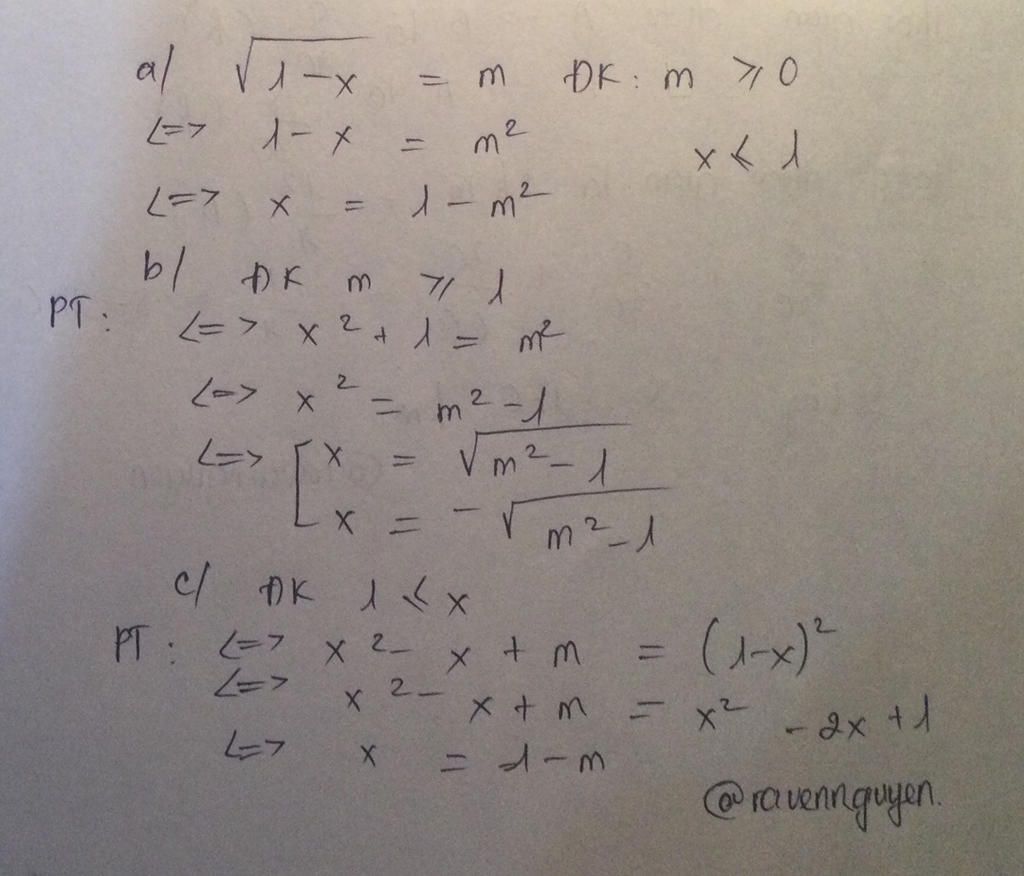 a/ √(1-x) = m ĐK: m ≥ 0
<=> 1-x = m² x ≤ 1
<=> x = 1-m²
b/ ĐK m ≥ 1
PT: <=> x² + 1 = m²
<=> x² = m² - 1
<=> [ x = √(m² - 1)
x = - √(m² - 1)
c/ ĐK 1 ≤ x
PT: <=> x² - x + m = (1-x)²
<=> x² - x + m = x² - 2x + 1
<=> x = 1 - m
@ravennguyen.